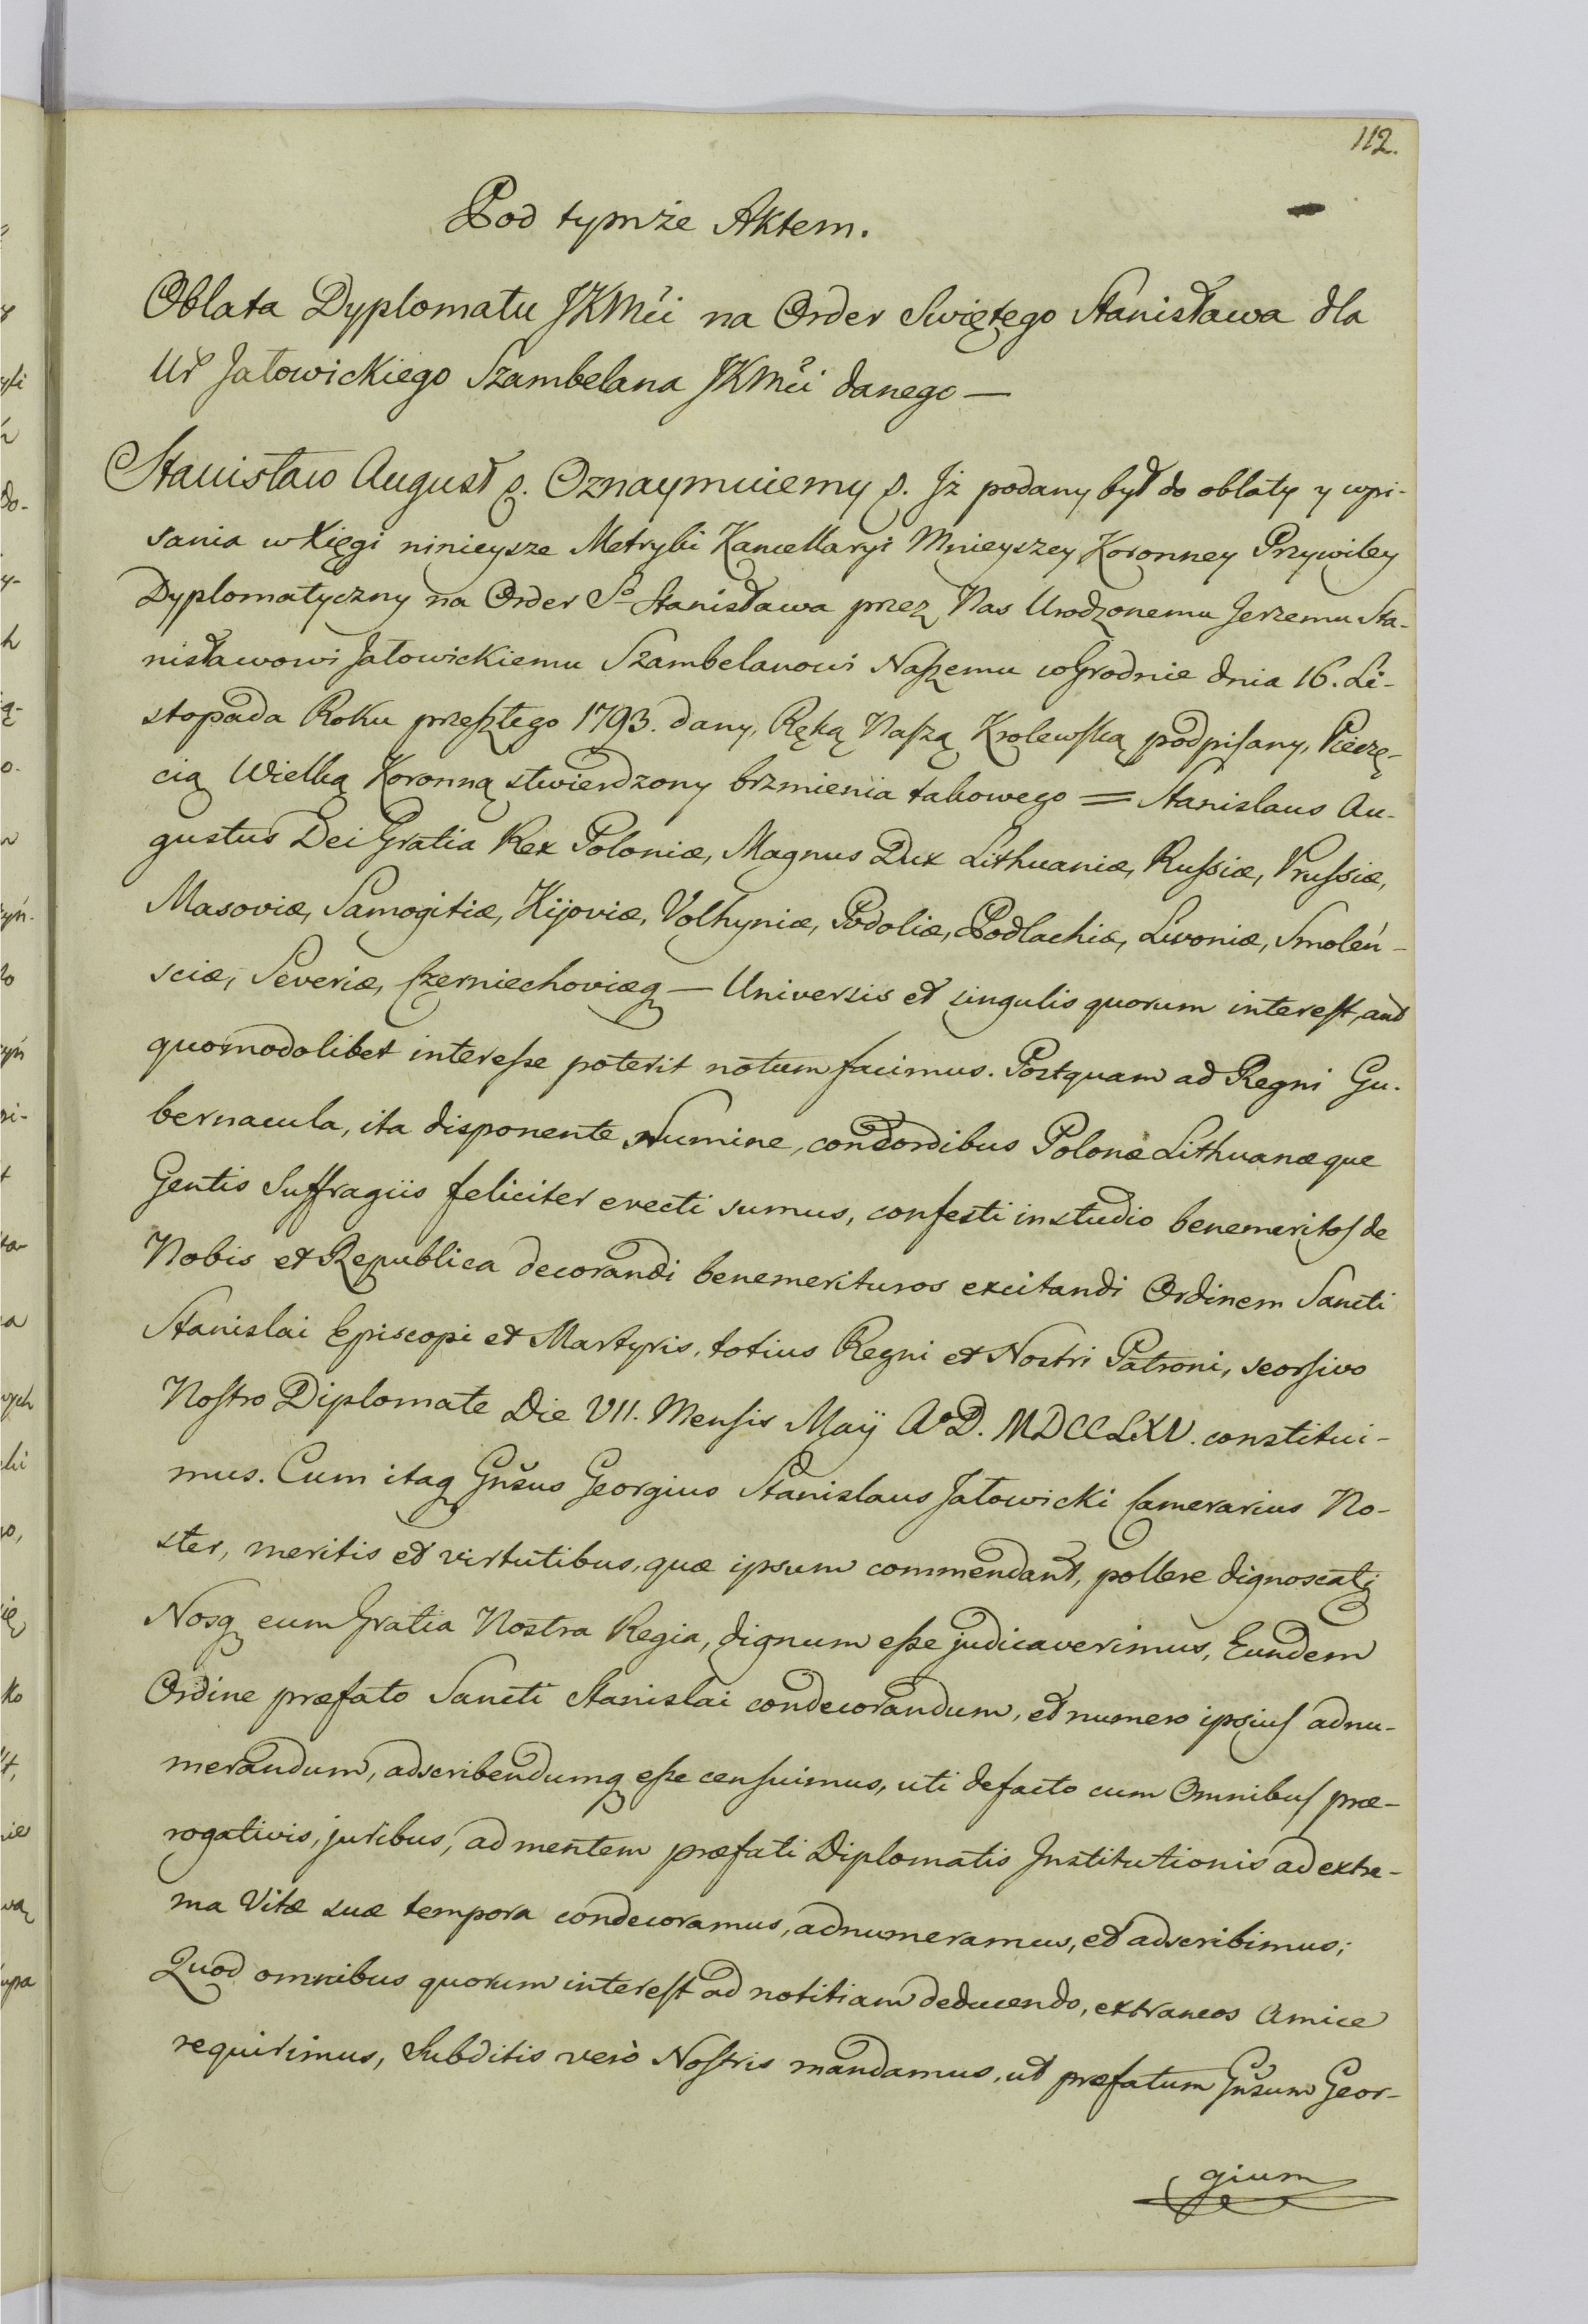 112.
Pod tymże Aktem.
Oblata Dyplomatu JKMci na Order Swiętego Stanisława dla
Ur Jałowickiego Szambelana JKMci danego —
Stanisław August p. Oznaymuiemy p. Jż podany był do oblaty y wpi-
sania w Xięgi ninieysze Metryki Kancellaryi Mnieyszey Koronney Przywiley
Dyplomatyczny na Order So Stanisława przez Nas Urodzonemu Jerzemu Sta-
nisławowi Jałowickiemu Szambelanowi Naszemu w Grodnie dnia 16. Li-
stopada Roku przeszłego 1793. dany, Ręką Naszą Krolewską podpisany, Pieczę-
cią Wielką Koronną stwierdzony brzmienia takowego = Stanislaus Au-
gustus Dei Gratia Rex Poloniæ, Magnus Dux Lithuaniæ, Russiæ, Prussiæ,
Masoviæ, Samogitiæ, Kijoviæ, Volhyniæ, Podoliæ, Podlachiæ, Livoniæ, Smoleń-
sciæ, Severiæ, Czerniechoviæq — Universis et singulis quorum interest, aut
quomodolibet interesse poterit notum facimus. Postquam ad Regni Gu-
bernacula, ita disponente Numine, concordibus Polonæ Lithuanæque
Gentis Suffragiis feliciter evecti sumus, confesti in studio benemeritos de
Nobis et Republica decorandi benemerituros excitandi Ordinem Sancti
Stanislai Episcopi et Martyris, totius Regni et Nostri Patroni, seorsivo
Nostro Diplomate Die VII. Mensis Maÿ Ao D. MDCCLXV. constitui-
mus. Cum itaq Gnšus Georgius Stanislaus Jałowicki Camerarius No-
ster, meritis et virtutibus, quæ ipsum commendant, pollere dignoscatq
Nosq eum Gratia Nostra Regia, dignum esse judicaverimus, Eundem
Ordine præfato Sancti Stanislai condecorandum, et numero ipsius adnu-
merandum, adscribendumq esse censuimus, uti defacto cum Omnibus præ-
rogativis, juribus, ad mentem præfati Diplomatis Institutionis ad extre-
ma Vitæ suæ tempora condecoramus, adnumeramus, et adscribimus;
Quod omnibus quorum interest ad notitiam deducendo, extraneos Amice
requirimus, Subditis verò Nostris mandamus, ut præfatum Gnšum Geor-
gium